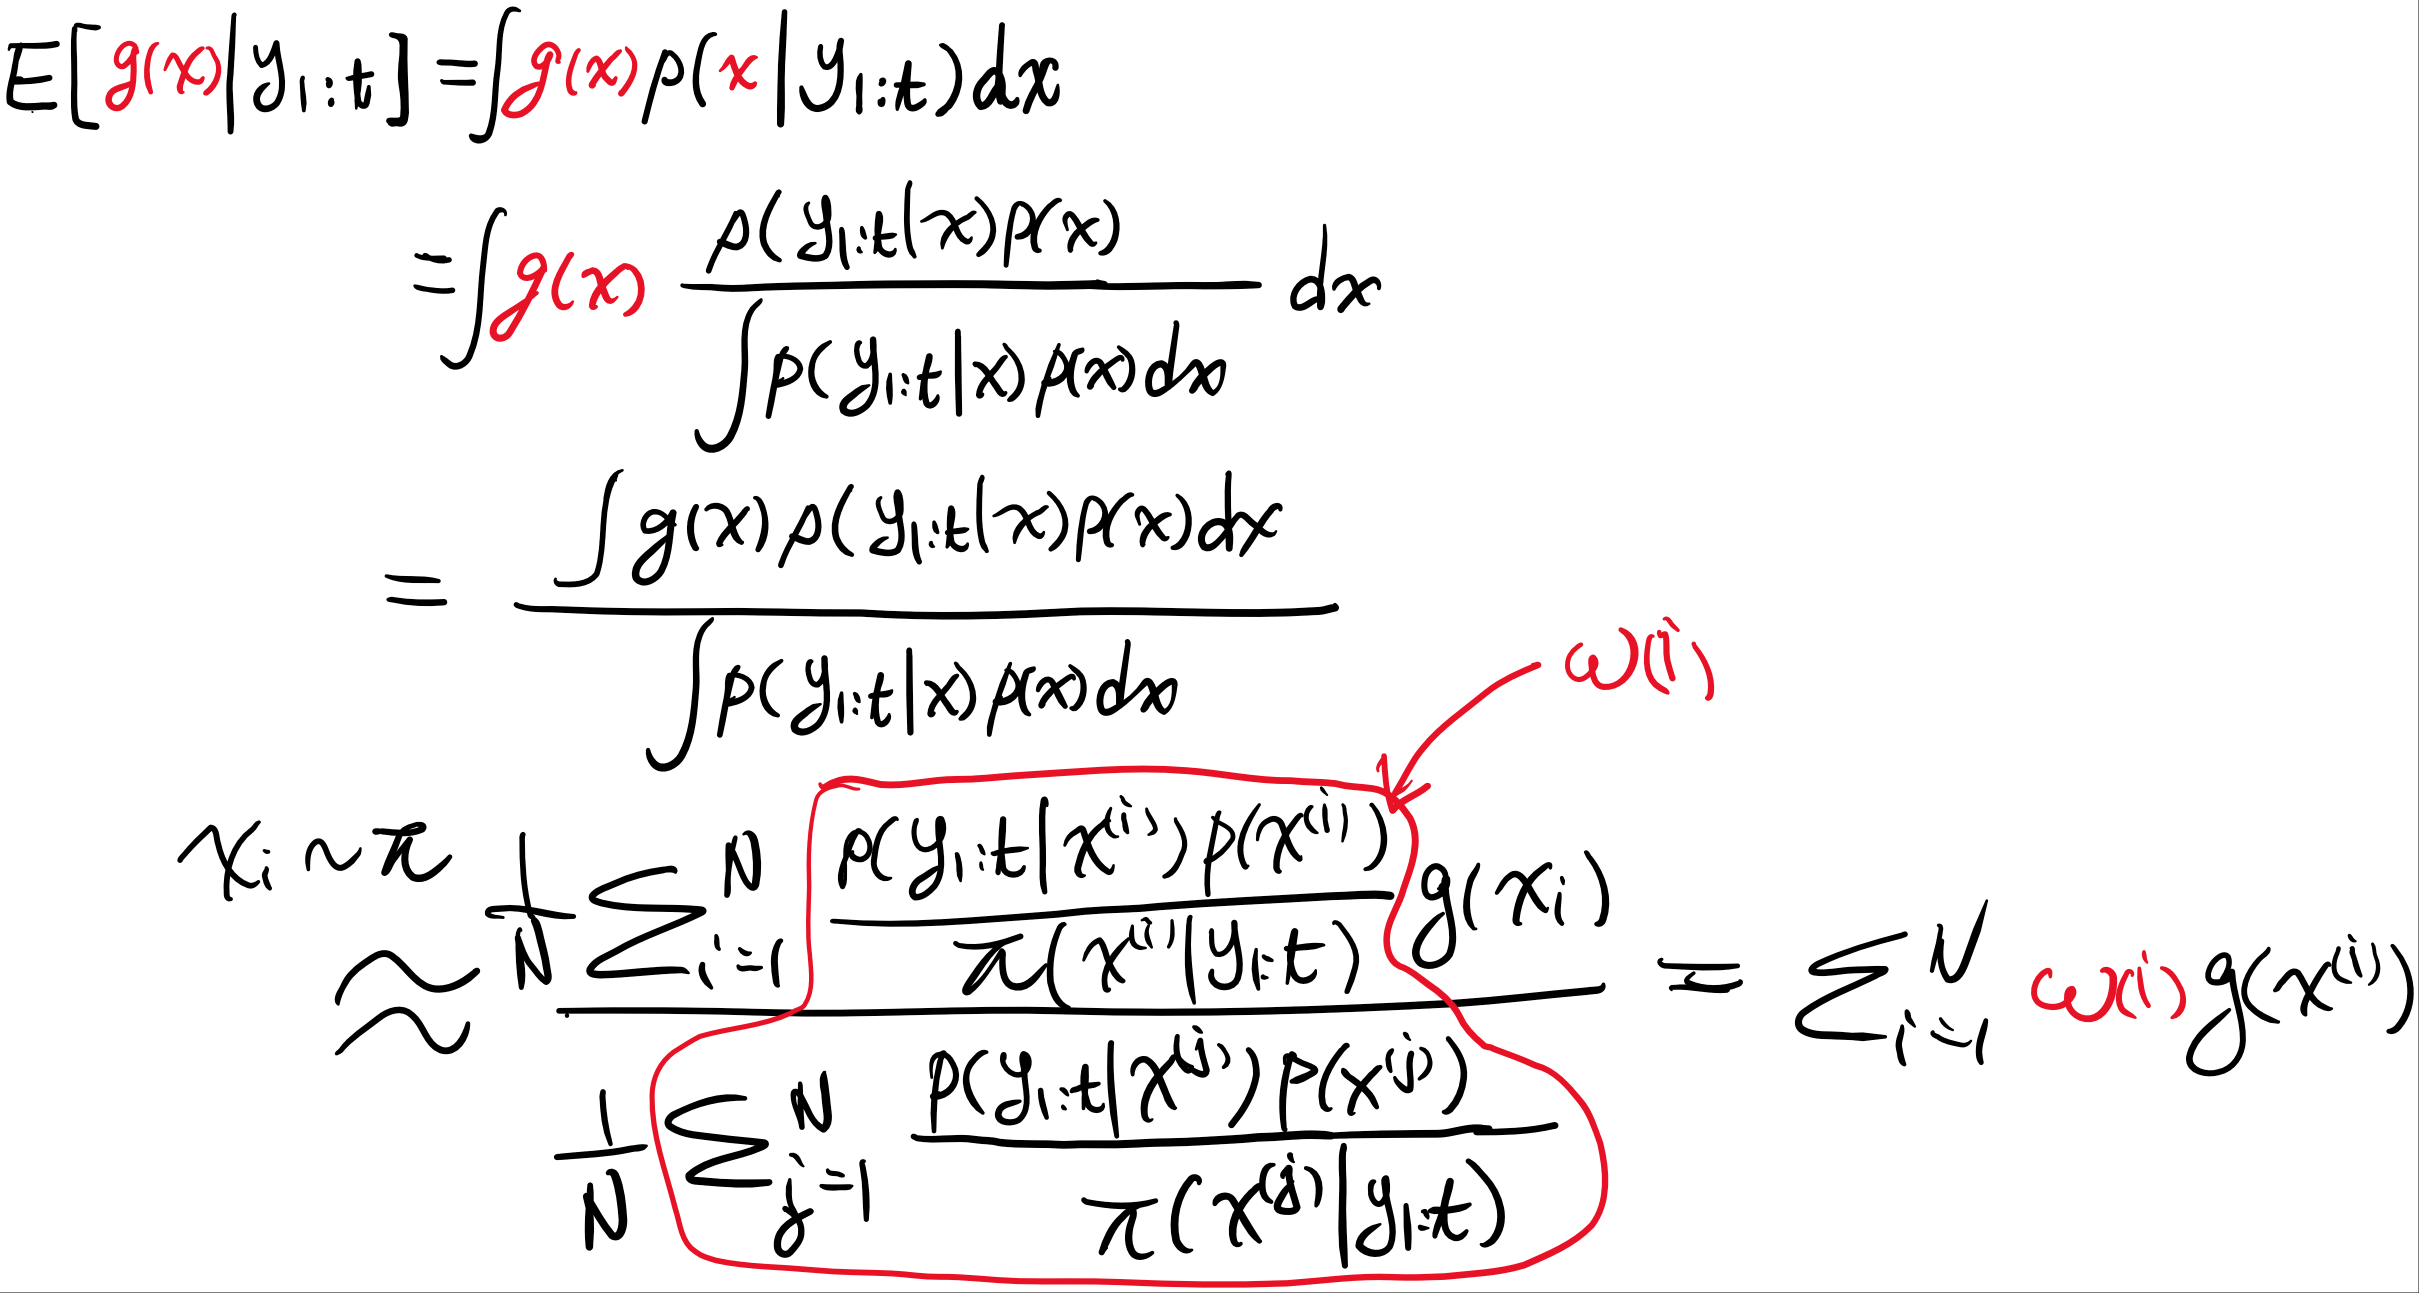 E[g(x)|y_{1:t}] = ∫ g(x) p(x|y_{1:t}) dx
= ∫ g(x) \frac{p(y_{1:t}|x) p(x)}{∫ p(y_{1:t}|x) p(x) dx} dx
= \frac{∫ g(x) p(y_{1:t}|x) p(x) dx}{∫ p(y_{1:t}|x) p(x) dx}
ω^{(i)}
x_i ~ π
≈ \frac{\frac{1}{N} ∑_{i=1}^{N} \frac{p(y_{1:t}|x^{(i)}) p(x^{(i)})}{π(x^{(i)}|y_{1:t})} g(x_i)}{\frac{1}{N} ∑_{j=1}^{N} \frac{p(y_{1:t}|x^{(j)}) p(x^{(j)})}{π(x^{(j)}|y_{1:t})}} = ∑_{i=1}^{N} ω^{(i)} g(x^{(i)})